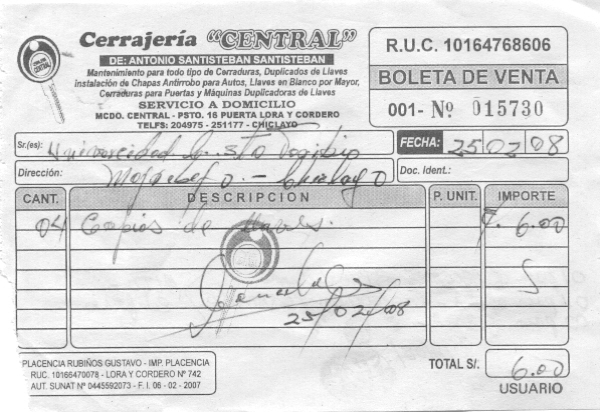 Cerrajería "CENTRAL"
DE: ANTONIO SANTISTEBAN SANTISTEBAN
Mantenimiento para todo tipo de Cerraduras, Duplicados de Llaves
instalación de Chapas Antirrobo para Autos, Llaves en Blanco por Mayor,
Cerraduras para Puertas y Máquinas Duplicadoras de Llaves
SERVICIO A DOMICILIO
MCDO. CENTRAL - PSTO. 16 PUERTA LORA Y CORDERO
TELFS: 204975 - 251177 - CHICLAYO
R.U.C. 10164768606
BOLETA DE VENTA
001- Nº 015730
Sr.(es): Universidad Sto Toribio
FECHA: 25 02 08
Dirección: Chiclayo
Doc. Ident.:
CANT. DESCRIPCION P. UNIT. IMPORTE
04 Copias de 6.00
25/02/08
PLACENCIA RUBIÑOS GUSTAVO - IMP. PLACENCIA
RUC. 10166470078 - LORA Y CORDERO Nº 742
AUT. SUNAT Nº 0445592073 - F. I. 06 - 02 - 2007
TOTAL S/. 6.00
USUARIO